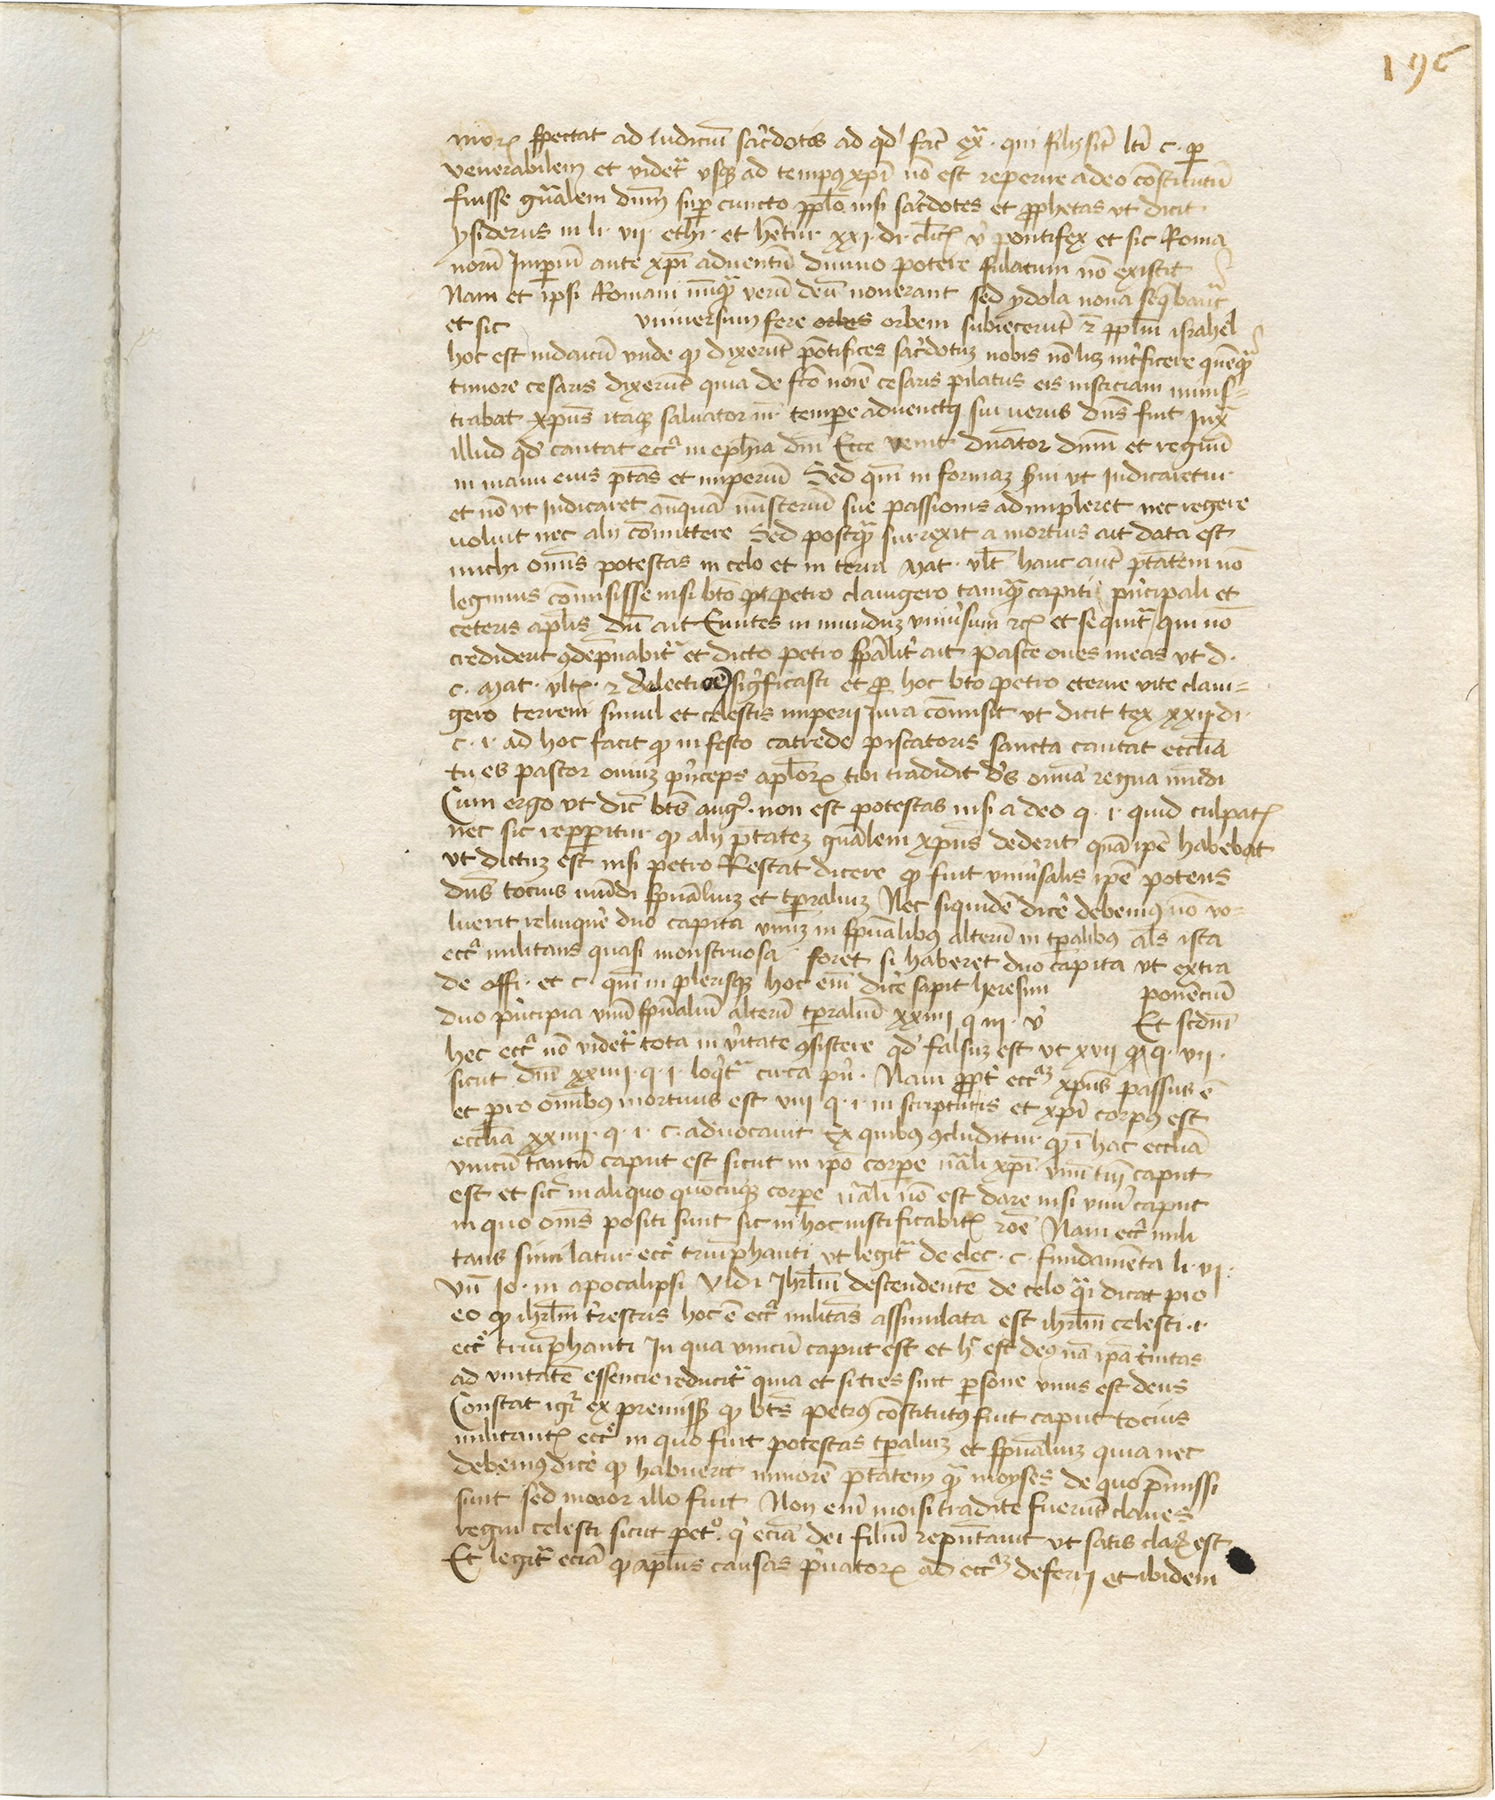 196
spectat ad iudiciū sac̄dotis ad qd' fac̄ ex̄ · qui filij sīt ltī c · p
venerabilem et videt᷑ vsq ad tempꝰ xp̄i nō est reperire a deo cōstitutū
fuisse gn̄alem dn̄m sup cuncto ppl̄o nisi sac̄dotes et pphetas vt dicit
ysiderus in li · vii · ethi · et hētur xxi · di · cleꝭ v̄ pontifex et sic Roma
norū Imperiū ante xp̄i aduentū diuino potere sulatum nō existit
Nam et ipsi Romani nūq̄ verū deū nouerant sed ydola seq̄bant᷑
et sic universum fere orbes orbem subiecerūt ⁊ ppl̄m israhel
hoc est iudaicū vnde ꝙ dixerūt pōtifices sac̄dotuȝ nobis nō liȝ int̄ficere quēq̄
timore cesaris dixerūt quia de fc̄o noīe cesaris pilatus eis iusticiam minis-
trabat xpūs itaqȝ saluator nr̄ tempe aduentꝰ sui verus dn̄s fuit Iux̄
illud qd' cantat ecc̄ in eph̄ia dn̄i Ecce venit dn̄ator dn̄us et regnū
in manu eius ptās et imperiū Sed qm̄ in formaȝ s̄ui vt Iudicaretur
et nō vt Iudicaret anquā mīsteriū sue passionis adimpleret nec regere
voluit nec alij cōmittere Sed postq̄ surrexit a mortuis ait data est
michi om̄is potestas in celo et in terra Mat · vlt̄ hanc aut̄ ptātem nō
legimus cōmisisse nisi btō petro clauigero tamq̄ capiti p̄ncipali et
ceteris apl̄is dū ait Euntes in munduȝ vniūsum ⁊cꝭ et sequit᷑ qui nō
crediderit ꝯdēpnabit᷑ et dicto petro spāliṫ ait pasce oues meas vt d ·
c · Mat · vltꝭ · ⁊ d'electiōe significasti et p hoc btō petro eterne vite claui-
gero terreni simul et celestis imperij iura cōmisit vt dicit tex xxij di ·
c · i · ad hoc facit ꝙ in festo catrede piscatoris sancta cantat eccl̄ia
tu es pastor ouiuȝ p̄nceps apl̄orꝝ tibi tradidit d's om̄ia regna mūdi
Cum ergo vt dic̄ bt̄s augꝰ · non est potestas nisi a deo q · i · quid culpatꝭ
nec sic repperitur ꝙ alij ptāteȝ gn̄alem xpūs dederit quā ipē habebat
vt dictuȝ est nisi petro Restat dicere ꝙ fuit vniūsalis ipē potens
dn̄s tocius mūdi spūaliuȝ et tp̄raliuȝ Nec siquidē dicē debemꝰ nō vo-
luerit relinquē duo capita vnuȝ in spūalibꝰ alterū in tp̄alibꝰ als̄ ista
ecc̄ militans quasi monstruosa foret si haberet duo capita vt extra
de offi · et c · qm̄ in plerisqȝ hoc em̄ dicē sapit heresim ponenciū
duo p̄ncipia vnū spūaliū alterū tp̄raliū xxiiii q iii · v̄ Et scdm̄
hec ecc̄ nō videt᷑ tota in v̄itate ꝯsistere qd' falsuȝ est vt xvii q · vii ·
sicut dn̄i xxiiii · q · i · loqt᷑ circa p̄n · Nam ppt̄ ecc̄aȝ xpūs passus ē
et pro om̄ibꝰ mortuus est viii q · i · in scripturis et xp̄i corpꝰ est
eccl̄ia xxiiii · q · i · c · aduocauit Ex quibꝰ ꝯcluditur ꝙ ī hac eccl̄ia
vnicū tantū caput est sicut in ip̄o corpe nāli xp̄i vnū tm̄ caput
est et sic in aliquo quocūqȝ corpe nāli nō est dare nisi vnū caput
in quo om̄s positi sunt sic in hoc iustificabitꝭ roē Nam ecc̄ mili
tans similatur ecc̄ triūphanti vt legit᷑ de elec · c · fundamēta li · vi ·
vn̄ Io · in apocalipsi vidi Ihrl̄m descendentē de celo q̄si dicat pro
eo ꝙ ihrl̄m t̄restris hoc ē ecc̄ militās assimilata est ihrl̄m celesti · i ·
ecc̄ triūphanti In qua vnicū caput est et hꝰ est deꝰ nā ip̄a t̄nitas
ad vnitatē essencie reducit᷑ quia et si tres sint persone vnus est deus
Constat igr̄ ex premissꝭ ꝙ bt̄s petrꝰ cōstitutꝰ fuit caput tocius
militantꝭ ecc̄ in quo fuit potestas tp̄aliuȝ et spūaliuȝ quia nec
debemꝰ dicē ꝙ habuerit minorē ptātem q̄ moyses de quo p̄missi
sunt sed maior illo fuit Non enī moisi tradite fuerūt claues
regni celesti sicut petº · q̄ eciā dei filiū reputauit vt satis claꝝ est
Et legit᷑ eciā ꝙ apl̄us causas p̄uatorꝝ ad ecc̄aȝ deferri et ibidem